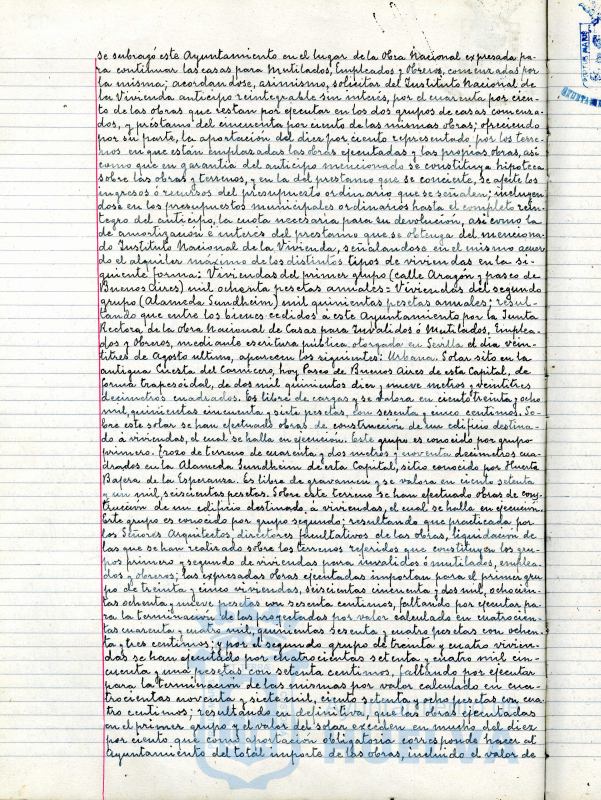 se subrogó este Ayuntamiento en el lugar de la Obra Nacional expresada pa-
ra continuar las casas para Mutilados, Empleados y Obreros, comenzadas por
la misma; acordandose, asimismo, solicitar del Instituto Nacional de
la Vivienda anticipo reintegrable sin interés, por el cuarenta por cien-
to de las obras que restan por ejecutar en los dos grupos de casas comenza-
dos, y préstamo del cincuenta por ciento de las mismas obras; ofreciendo
por su parte, la aportación del diez por ciento representado por los terre-
nos en que están emplazadas las obras ejecutadas y las propias obras, así
como que en garantía del anticipo mencionado se constituya hipoteca
sobre las obras y terrenos, y en la del prestamo que se concierte, se afecte los
ingresos ó recursos del presupuesto ordinario que se señalen; incluyen
dose en los presupuestos municipales ordinarios hasta el completo rein-
tegro del anticipo, la cuota necesaria para su devolución, así como la
de amortización é interés del prestamo que se obtenga del menciona-
do Instituto Nacional de la Vivienda, señalandose en el mismo acuer-
do el alquiler máximo de los distintos tipos de viviendas en la si-
guiente forma: Viviendas del primer grupo (calle Aragón y paseo de
Buenos Aires) mil ochenta pesetas anuales = Viviendas del segundo
grupo (Alameda Sundheim) mil quinientas pesetas anuales; resul-
tando que entre los bienes cedidos á este Ayuntamiento por la Junta
Rectora de la obra Nacional de Casas para Invalidos ó Mutilados, Emplea-
dos y Obreros, mediante escritura pública otorgada en Sevilla el dia vein-
titres de Agosto ultimo, aparecen los siguientes: Urbana. Solar sito en la
antigua Cuesta del Carnicero, hoy Paseo de Buenos Aires de esta Capital, de
forma trapezoidal, de dos mil quinientos diez y nueve metros y veintitres
decimetros cuadrados. Es libre de cargas y se valora en ciento treinta y ocho
mil, quinientas cincuenta y siete pesetas, con sesenta y cinco centimos. So-
bre este solar se han efectuado obras de construcción de un edificio destina-
do á viviendas, el cual se halla en ejecución. Este grupo es conocido por grupo
primero. Trozo de terreno de cuarenta y dos metros y noventa decimetros cua-
drados en la Alameda Sundheim de esta Capital, sitio conocido por Huerta
Bajera de la Esperanza. Es libre de gravamen y se valora en ciento setenta
y un mil, seiscientas pesetas. Sobre este terreno se han efectuado obras de cons-
trucción de un edificio destinado, á viviendas, el cual se halla en ejecución.
Este grupo es conocido por grupo segundo; resultando que practicada por
los Señores Arquitectos, directores facultativos de las obras, liquidación de
las que se han realizado sobre los terrenos referidos que constituyen los gru-
pos primero y segundo de viviendas para invalidos ó mutilados, emplea-
dos y obreros; las expresadas obras ejecutadas importan para el primer gru-
po de treinta y cinco viviendas, seiscientas cincuenta y dos mil, ochocien-
tas ochenta y nueve pesetas con sesenta centimos, faltando por ejecutar pa-
ra la terminación de las proyectadas por valor calculado en cuatrocien-
tas cuarenta y cuatro mil, quinientas sesenta y cuatro pesetas con ochen-
ta y tres centimos; y por el segundo grupo de treinta y cuatro vivien-
das se han ejecutado por cuatrocientas setenta y cuatro mil cin-
cuenta y una pesetas con setenta centimos, faltando por ejecutar
para la terminación de las mismas por valor calculado en cua-
trocientas noventa y siete mil, ciento setenta y ocho pesetas con cua-
tro centimos; resultando en definitiva, que las obras ejecutadas
en el primer grupo y el valor del solar exceden en mucho del diez
por ciento que como aportación obligatoria corresponde hacer al
Ayuntamiento del total importe de las obras, incluido el valor de